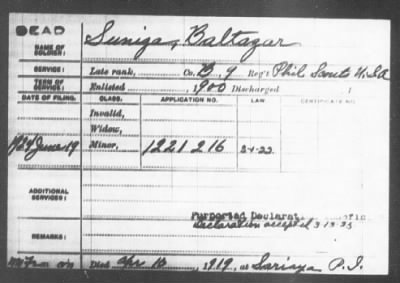 DEAD
NAME OF SOLDIER: Suniga, Baltazar
SERVICE: Late rank, Co. B, 9 Reg't Phil Scouts U.S.A
TERM OF SERVICE: Enlisted 1900 Discharged , 1
DATE OF FILING. CLASS. APPLICATION NO. LAW. CERTIFICATE NO.
Invalid,
Widow,
1924 June 19 Minor, 1221216
ADDITIONAL SERVICES:
Purported Declarat
Declaration accepted 3-13-25
REMARKS:
Died Apr 10, 1919, at Sariaya P.I.